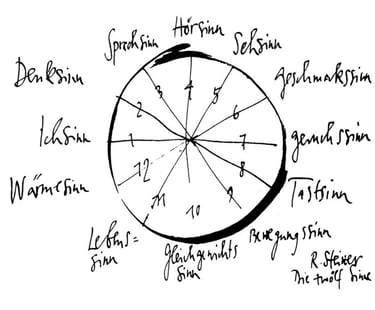 Hörsinn
Sprachsinn
Sehsinn
Denksinn
geschmackssinn
3 4 5
2 6
Ichsinn
1 7
geruchssinn
12 8
Wärmesinn
Tastsinn
11 10 9
Lebens=
sinn
gleichgewichts
sinn
Bewegungssinn
R. Steiner
Die zwölf Sinne